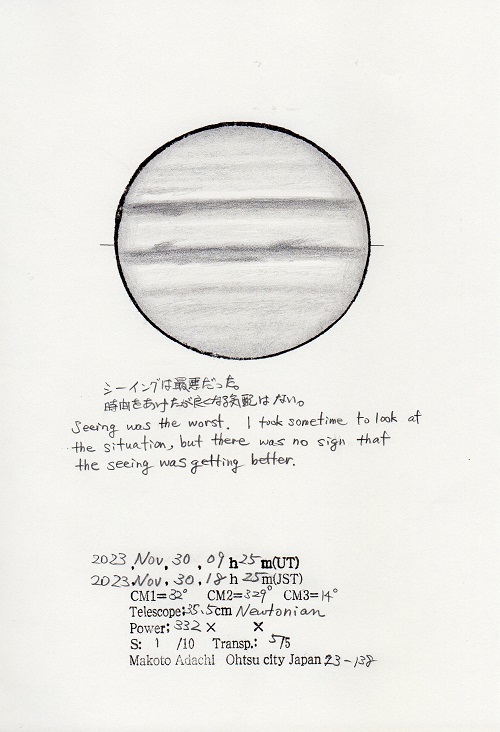 シーイングは最悪だった。
時間をあけたが良くなる気配はない。
Seeing was the worst. I took sometime to look at
the situation, but there was no sign that
the seeing was getting better.
2023, Nov, 30, 09 h 25 m(UT)
2023, Nov, 30, 18 h 25 m(JST)
CM1=32° CM2=329° CM3=14°
Telescope:35.5cm Newtonian
Power: 332 × ×
S: 1 /10 Transp.: 5/5
Makoto Adachi Ohtsu city Japan 23-138